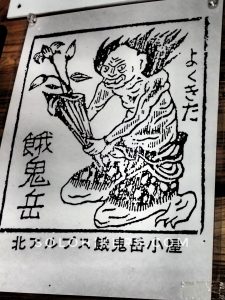 よくきた
餓鬼岳
北アルプス餓鬼岳小屋